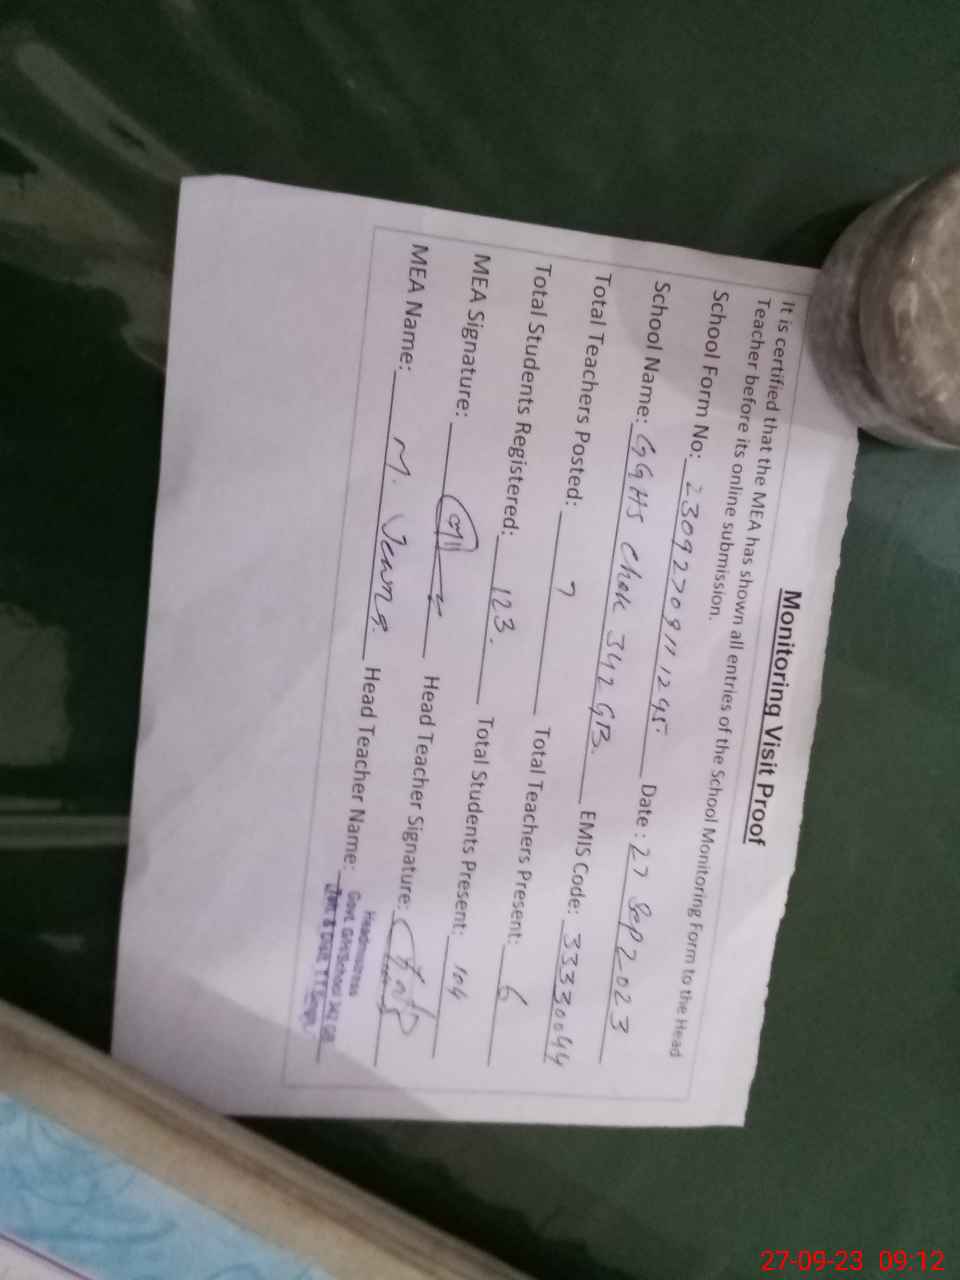 Monitoring Visit Proof
It is certified that the MEA has shown all entries of the School Monitoring Form to the Head
Teacher before its online submission.
School Form No: 23092709111295 Date : 27 Sep 2023
School Name: GGHS Chak 342 GB. EMIS Code: 33330044
Total Teachers Posted: 7 Total Teachers Present: 6
Total Students Registered: 123. Total Students Present: 104
MEA Signature: Head Teacher Signature:
MEA Name: M. Head Teacher Name:
Headmistress
Govt. Girls School 342 GB
27-09-23 09:12